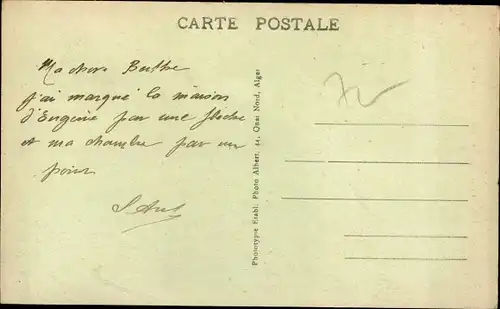 CARTE POSTALE
Ma chere Berthe
j'ai marqué la maison
d'Eugénie par une flèche
et ma chambre par un
point
Phototypie Etabl. Photo Albert, 44, Quai Nord, Alger